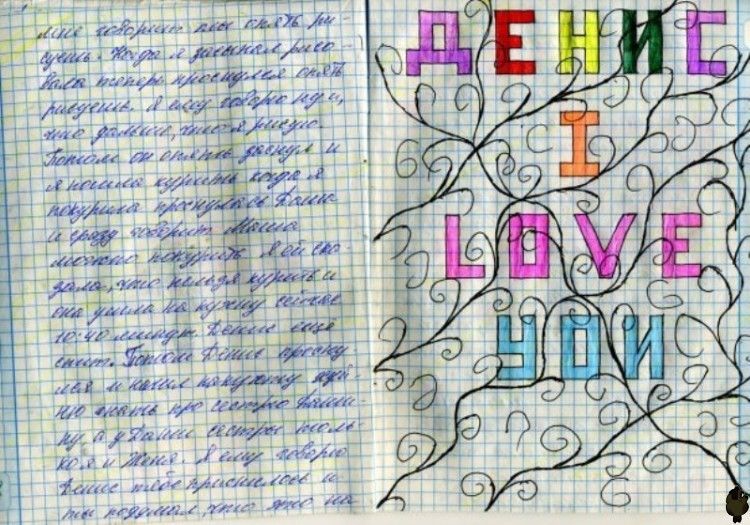 мне говорит ты опять ри-
суешь. Когда я засыпал рисо-
вала теперь проснулся опять
рисуешь. Я ему говорю ну и,
что дальше, что я рисую.
Потом он опять заснул и
я пошла курить когда я
покурила проснулась Даша
и сразу говорит Маша
можно покурить. Я ей ска-
зала, что нельзя курить и
она ушла на кухню сейчас
10:40 минут. Денис ещё
спит. Потом Денис просну-
лся и начал
знать про сестру Даши-
ну а у Даши сестры толь-
ко я и Женя. Я ему говорю
Денис тебе приснилось и
ты подумал, что это на
ДЕНИС
I
LOVE
YOИ